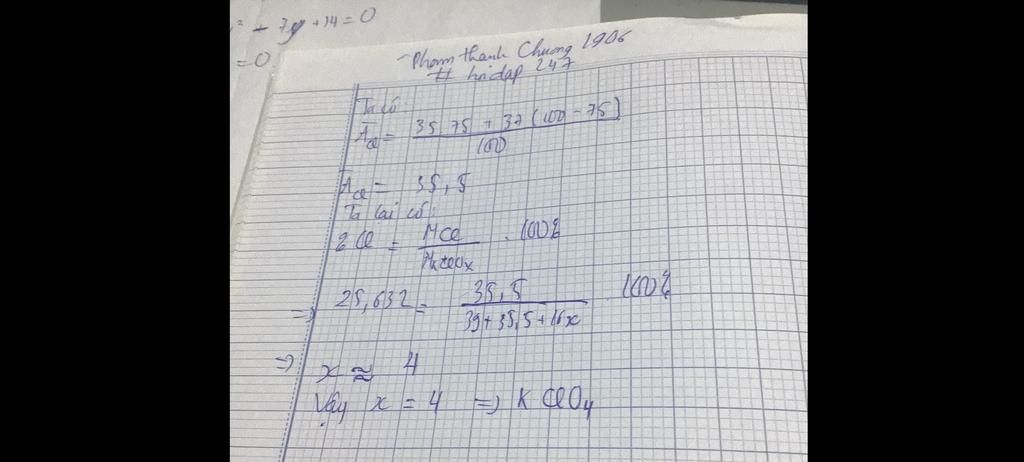 ² + 7y + 14 = 0
= 0
Phạm Thanh Chương 1906
# hoidap 247
Ta có:
A̅Cl = (35.75 + 37(100 - 75))/100
A̅Cl = 35,5
Ta lại có:
%Cl = MCl/MKClOx . 100%
=> 25,632 = 35,5/(39 + 35,5 + 16x) . 100%
=> x ≈ 4
Vậy x = 4 => KClO4